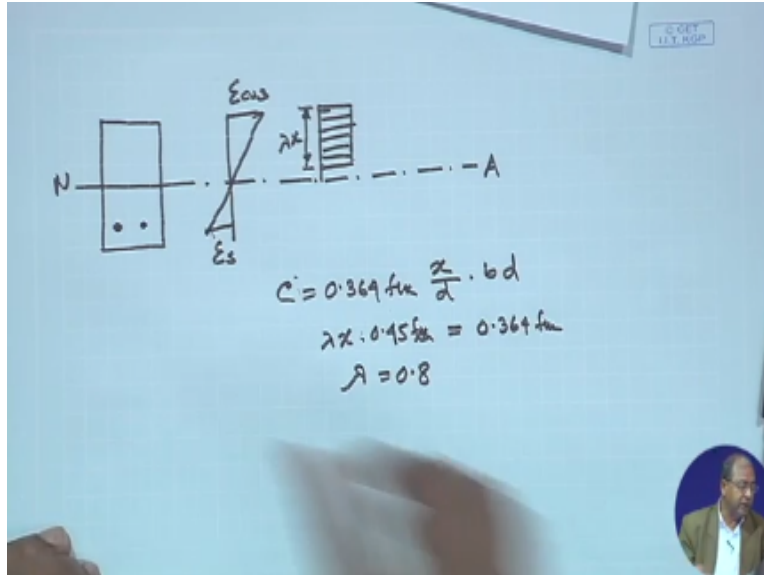 © CET
I.I.T. KGP
εcu3
λx
N
A
εs
C = 0.364 fck x/d · bd
λx · 0.45 fck = 0.364 fck
λ = 0.8